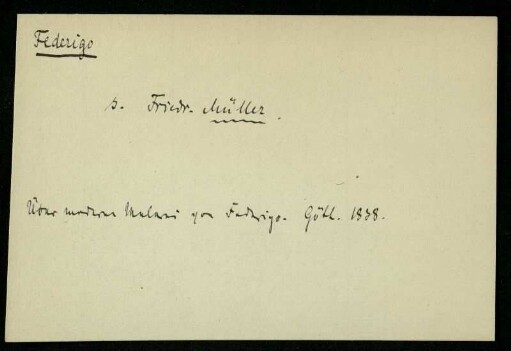 Federigo
s. Friedr. Müller.
Über moderne Malerei von Federigo. Gött. 1838.